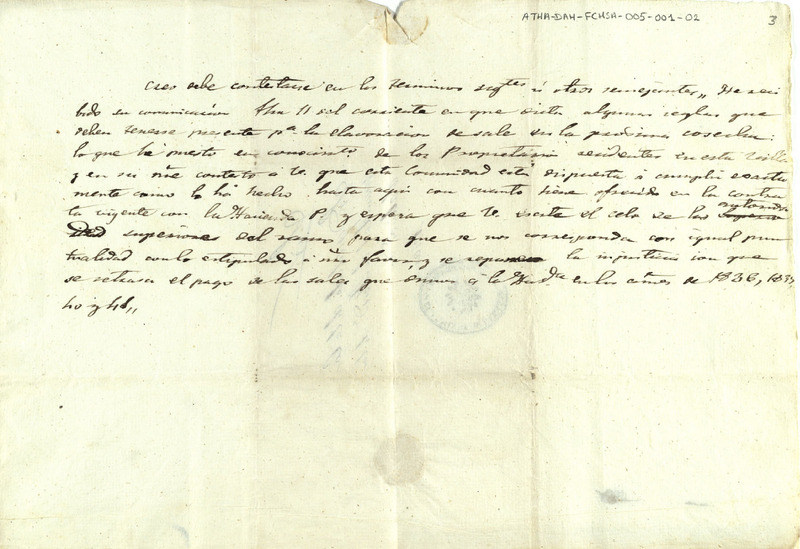 ATHA-DAH-FCHSA-005-001-02
3
Creo debe contestarse en los terminos sigtes ú otros semejantes,, He reci
bido su comunicacion fha 11 del corriente en que dicta algunas reglas que
deben tenerse presente pa la elavoracion de sal en la procsima cosecha:
lo que he puesto en conocimto de los Propietarios residentes en esta Villa
y en su nre contesto á V. que esta Comunidad está dispuesta á cumplir esacta
mente como lo ha hecho hasta aqui con cuanto tiene ofrecido en la contra
ta vigente con la Hacienda P. y espera que V. escite el celo de las autorida
des superiores del ramo, para que se nos corresponda con igual pun
tualidad con lo estipulado á nro favor, y se repare la injusticia con que
se retrasa el pago de las sales que dimos á la Hda en los años de 1838, 1839,
40 y 41,,